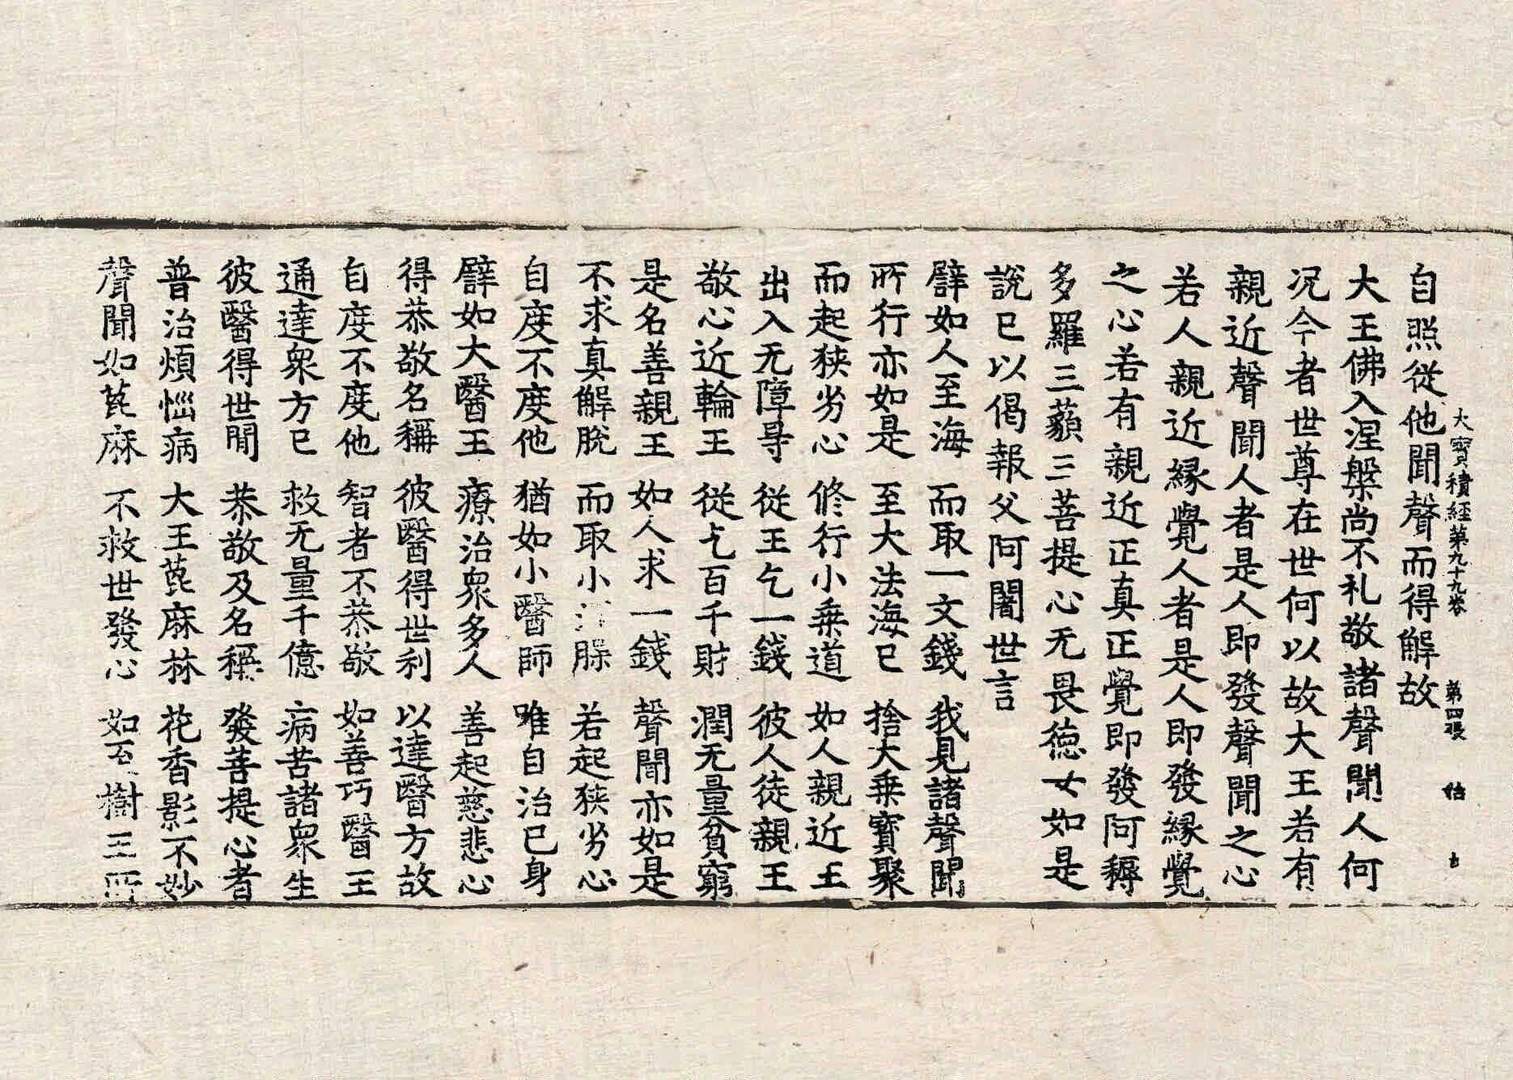 大寶積經第九十九卷　第四張
自照從他聞聲而得解故
大王佛入涅槃尚不礼敬諸聲聞人何
况今者世尊在世何以故大王若有
親近聲聞人者是人即發聲聞之心
若人親近緣覺人者是人即發緣覺
之心若有親近正真正覺即發阿耨
多羅三藐三菩提心无畏德女如是
說已以偈報父阿闍世言
譬如人至海　而取一文錢　我見諸聲聞
所行亦如是　至大法海已　捨大乗寶聚
而起狹劣心　修行小乗道　如人親近王
出入无障㝵　從王乞一錢　彼人徒親王
敬心近輪王　從乞百千財　潤无量貧窮
是名善親王　如人求一錢　聲聞亦如是
不求真解脫　而取小　若起狹劣心
自度不度他　猶如小醫師　唯自治己身
譬如大醫王　療治衆多人　善起慈悲心
得恭敬名稱　彼醫得世利　以達醫方故
自度不度他　智者不恭敬　如善巧醫王
通達衆方已　救无量千億　病苦諸衆生
彼醫得世間　恭敬及名稱　發菩提心者
普治煩惱病　大王萞麻林　花香影不妙
聲聞如萞麻　不救世發心　如　樹王